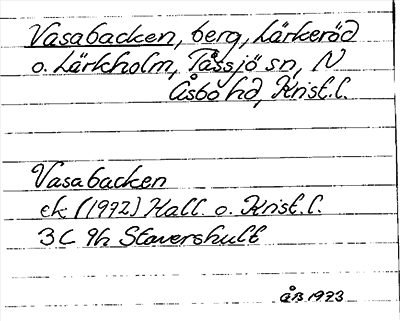 Vasabacken, berg, Lärkeröd
o. Lärkholm, Tåssjö sn, N
Åsbo hd, Krist. l.
Vasabacken
ek (1972) Hall. o. Krist. l.
3C 9h Stavershult
ÅB 1973